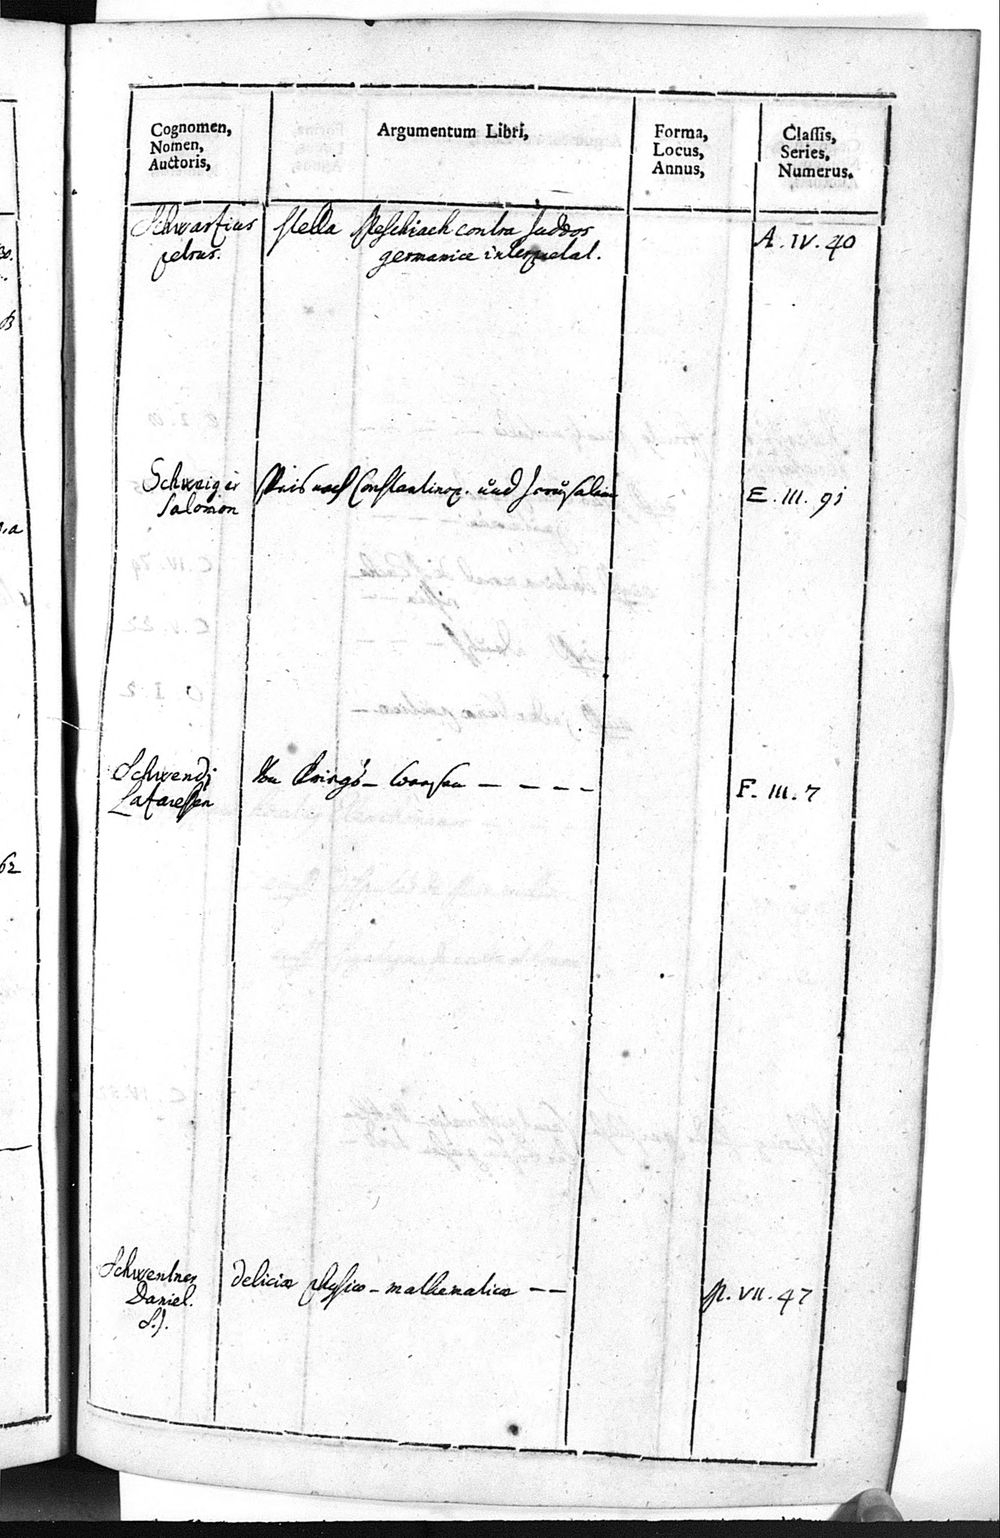 Cognomen,
Nomen,
Auctoris,
Argumentum Libri,
Forma,
Locus,
Annus,
Claſſis,
Series,
Numerus.
Schwartzius
petrus.
Stella Meschiach contra Judæos
germanice interpretat.
A. IV. 40
Schweiger
Salomon
Reis nach Constantinop. und Jerusalem
E. III. 91
Schwendj
Lazarussen
Von Kriegs-
F. III. 7
Schwenter
Daniel.
deliciæ physico-mathematicæ
M. VII. 47